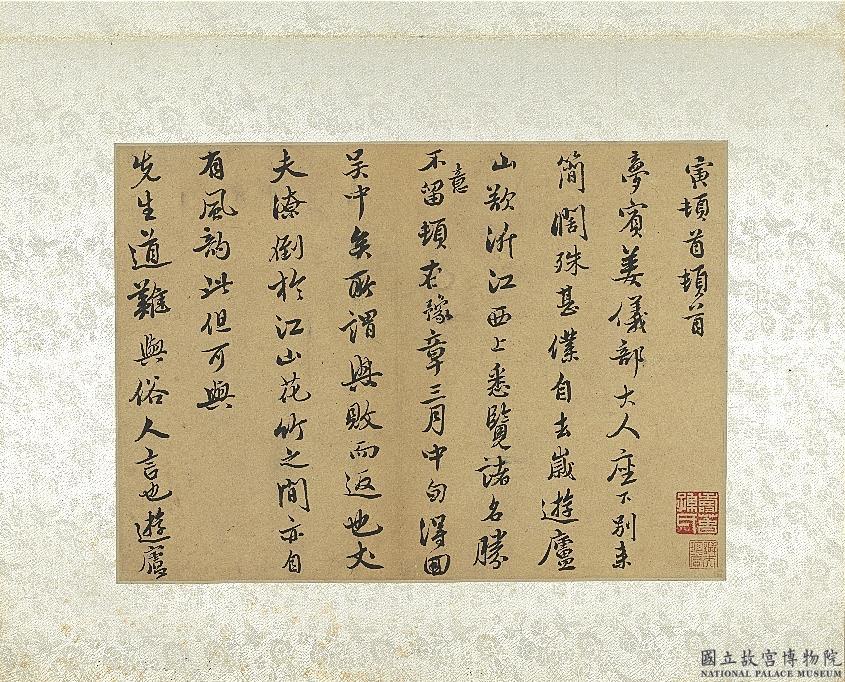 寅頓首頓首
夢賓姜儀部大人座下別來
簡闊殊甚僕自去歲遊廬
山欲泝江西上悉覽諸名勝
不意留頓在豫章三月中旬得回
吴中矣所謂興敗而返也丈
夫潦倒於江山花竹之間亦自
有風韵此但可與
先生道難與俗人言也遊廬
國立故宮博物院
NATIONAL PALACE MUSEUM